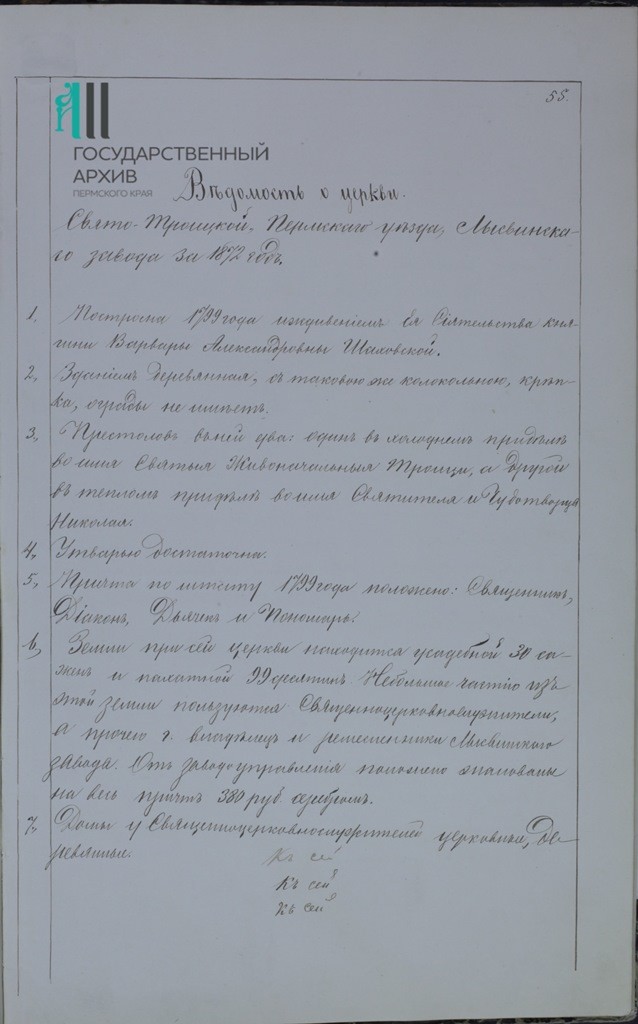 55.
ГОСУДАРСТВЕННЫЙ
АРХИВ
ПЕРМСКОГО КРАЯ
Вѣдомость о церкви.
Свято-Троицкой, Пермскаго уѣзда, Лысвинска-
го завода за 1872 годъ.
1, Построена 1799 года иждивеніемъ Ея Сіятельства кня-
гини Варвары Александровны Шаховской.
2, Зданіемъ деревянная, съ таковою же колокольною, крѣп-
ка, ограды не имѣетъ.
3, Престоловъ въ ней два: одинъ въ холодномъ придѣлѣ
во имя Святыя Живоначальныя Троицы, а другой
въ тепломъ придѣлѣ во имя Святителя и Чудотворца
Николая.
4, Утварью достаточна.
5, Причта по штату 1799 года положено: Священникъ,
Діаконъ, Дьячекъ и Пономарь.
6, Земли при сей церкви находится усадебной 30 са-
женъ и пахатной 99 десятинъ. Небольшою частію изъ
этой земли пользуются Священноцерковнослужители,
а прочею г. владѣлецъ и ремесленники Лысвинскаго
завода. Отъ заводоуправленія положено жалованье
на весь причтъ 380 руб. серебромъ.
7, Домы у Священноцерковнослужителей церковные, де-
ревянные.
Къ сей
Къ сей
Къ сей